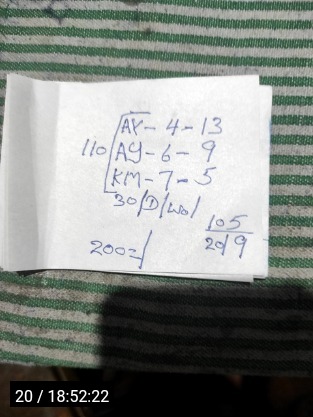 AY-4-13
110 AY-6-9
KM-7-5
30/D/wo/
105
20/9
200=/
20 / 18:52:22